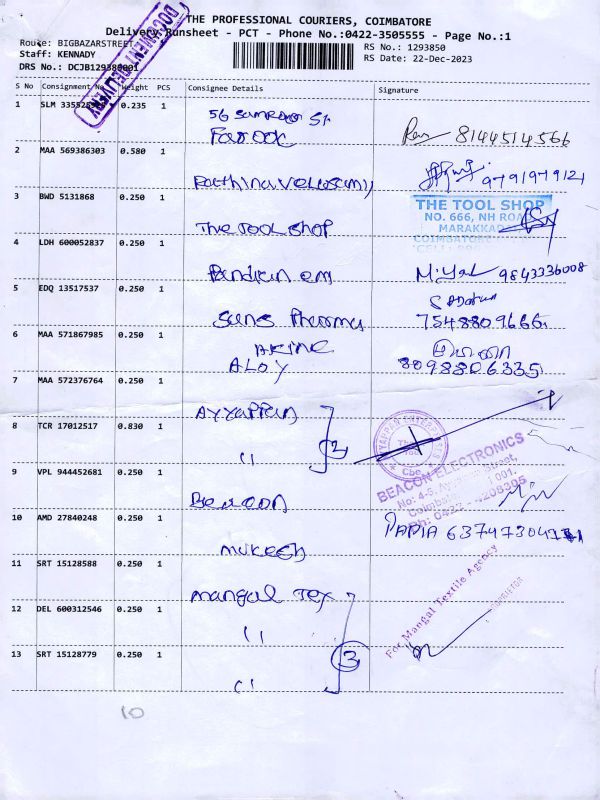 THE PROFESSIONAL COURIERS, COIMBATORE
Delivery Runsheet - PCT - Phone No.:0422-3505555 - Page No.:1
Route: BIGBAZARSTREET
Staff: KENNADY
DRS No.: DCJB129380001
RS No.: 1293850
RS Date: 22-Dec-2023
DOCUMENT DELIVERY
S No Consignment No Weight PCS Consignee Details Signature
1 SLM 0.235 1 56
Farook 8144514566
2 MAA 569386303 0.580 1 Rathinavelusamy 9791979121
3 BWD 5131868 0.250 1 The Tool Shop
THE TOOL SHOP
NO. 666, NH ROAD
MARAKKAD
COIMBATORE
4 LDH 600052837 0.250 1 Pandian em 9843336008
5 EDQ 13517537 0.250 1 Suns Pharma 7548809666
6 MAA 571867985 0.250 1 ALOY 8098806335
7 MAA 572376764 0.250 1 Ayyappan
8 TCR 17012517 0.830 1 " 2
9 VPL 944452681 0.250 1 Beacon
BEACON ELECTRONICS
10 AMD 27840248 0.250 1 Mukesh PAPIA
11 SRT 15128588 0.250 1 Mangal Tex
12 DEL 600312546 0.250 1 "
For Mangal Textile Agency
PROPRIETOR
13 SRT 15128779 0.250 1 " 3
10